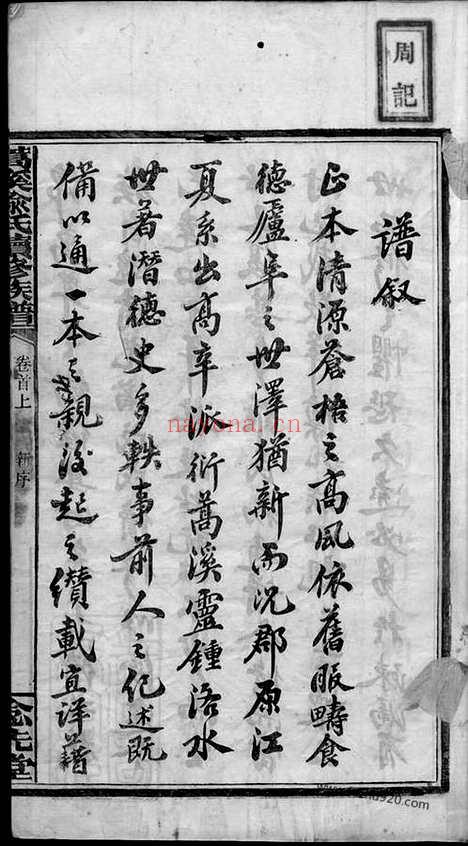 周記
譜叙
正本清源蒼梧之高風依舊服疇食
德廬阜之世澤猶新而况郡原江
夏系出高辛派衍蒿溪靈鍾洛水
世著潛德史多軼事前人之紀述既
備以通一本之親後起之纘載宜詳藉
氏續修族譜
卷首上
新序
堂
nayona.cn
920.com